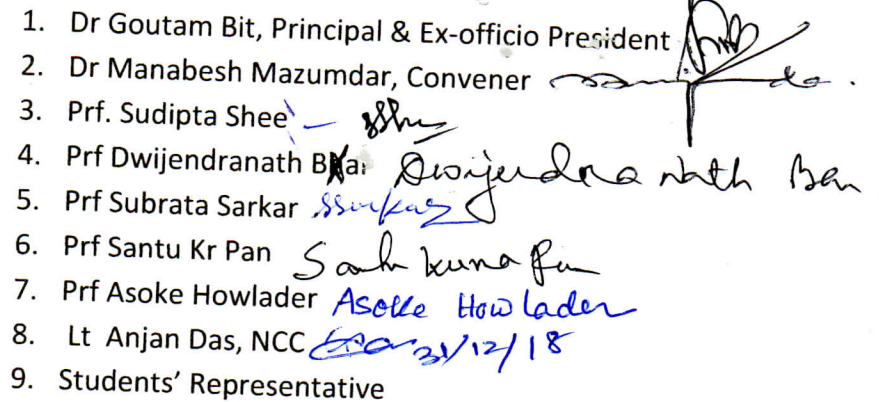 1. Dr Goutam Bit, Principal & Ex-officio President
2. Dr Manabesh Mazumdar, Convener
3. Prf. Sudipta Shee
4. Prf Dwijendranath Dwijendra Nath
5. Prf Subrata Sarkar SSarkar
6. Prf Santu Kr Pan Santu Kumar Pan
7. Prf Asoke Howlader Asoke Howlader
8. Lt Anjan Das, NCC 31/12/18
9. Students' Representative